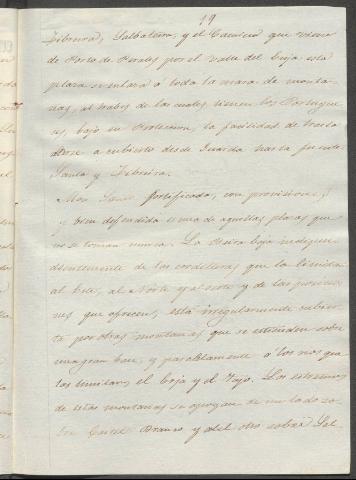 19
Zibreira, Salbatierra, y el Camino que viene
de Porto de Perales por el valle del
plaza a toda la masa de monta-
ñas, al trabes de los cuales tienen los Portugue-
ses, bajo su Proteccion, la facilidad de trasla-
darse a cubierto desde Guarda hasta
y Zibreira.
Mon Santo fortificada, con provisiones,
y bien defendida es una de aquellas plazas que
no se toman nunca. La Beira baja indepen-
dientemente de las cordilleras que la limitan
al Este, al Norte y al oeste y de las posicio-
nes que ofrecen, está irregularmente cubier-
ta por otras montañas que se estienden sobre
una gran base, y paralelamente a los rios que
las limitan, el y el Tajo. Los estremos
de estas montañas se apoyan de un lado so-
bre Castel Branco y del otro sobre Sal-